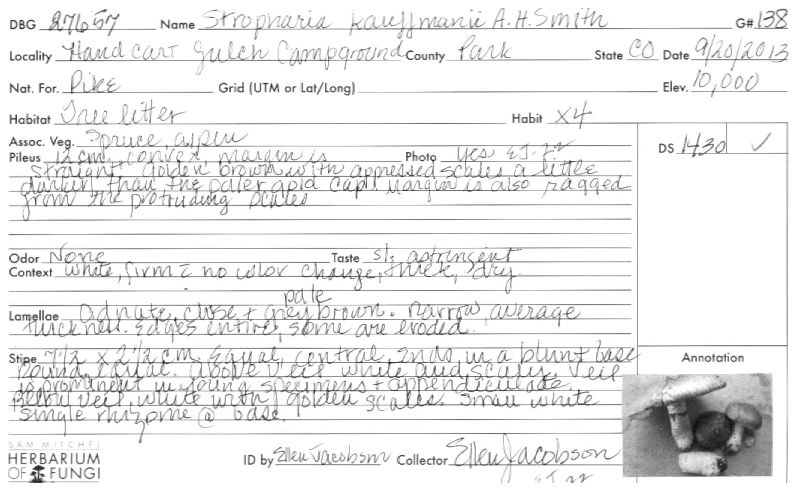 DBG 27657 Name Stropharia kauffmanii A.H. Smith G# 138
Locality Handcart Gulch Campground County Park State CO Date 9/20/2013
Nat. For. Pike Grid (UTM or Lat/Long) Elev. 10,000
Habitat Tree litter Habit x4
Assoc. Veg. Spruce, aspen
DS 1430 ✓
Pileus 12 cm, convex, margin is Photo yes EJ-22
straight. Golden brown with appressed scales a little
darker than the paler gold cap. Margin is also ragged
from the protruding scales
Odor None Taste sl. astringent
Context White, firm = no color change, thick, dry.
pale
Lamellae Adnate, close + grey brown. Narrow, average
thickness. Edges entire, some are eroded.
Stipe 7 1/2 x 2 1/2 cm. Equal, central, ends in a blunt base
Round, equal. Above veil white and scaly. Veil
is prominent in young specimens + appendiculate.
Below veil, white with golden scales. Small white
single rhizome @ base.
Annotation
SAM MITCHEL
HERBARIUM
OF FUNGI
ID by Ellen Jacobson Collector Ellen Jacobson
EJ-22